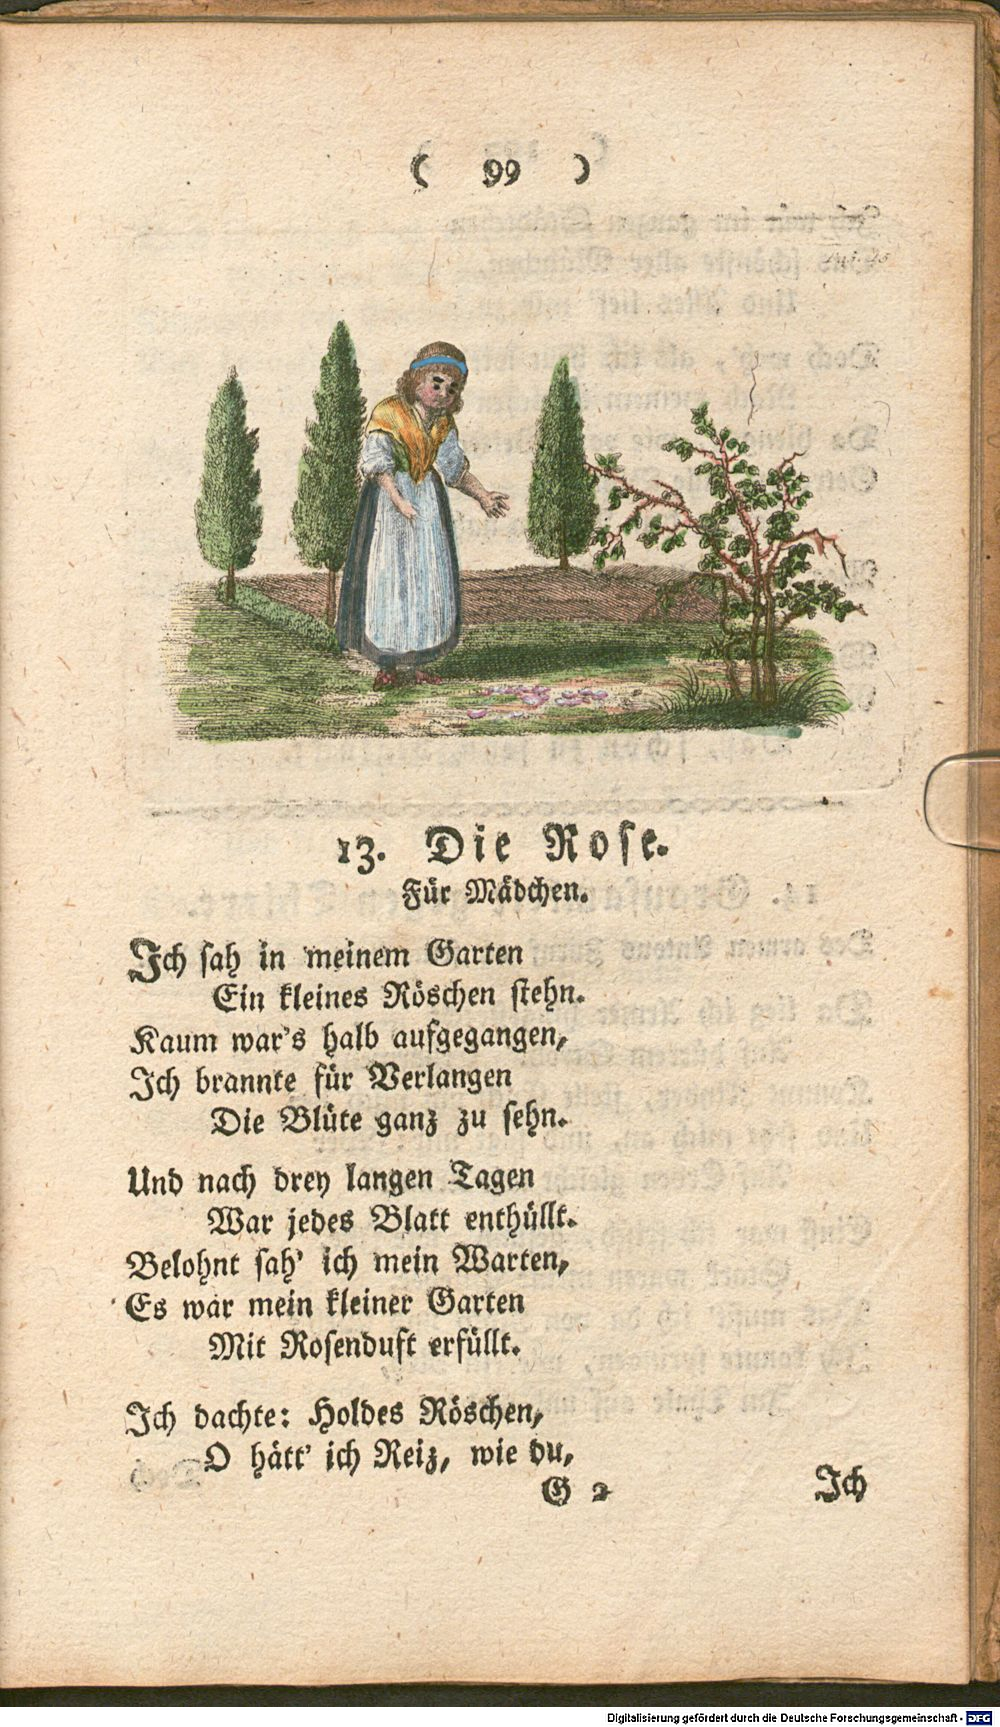 ( 99 )
13. Die Rose.
Für Mädchen.
Ich sah in meinem Garten
Ein kleines Röschen stehn.
Kaum war's halb aufgegangen,
Ich brannte für Verlangen
Die Blüte ganz zu sehn.
Und nach drey langen Tagen
War jedes Blatt enthüllt.
Belohnt sah' ich mein Warten,
Es war mein kleiner Garten
Mit Rosenduft erfüllt.
Ich dachte: Holdes Röschen,
O hätt' ich Reiz, wie du,
G 2
Ich
Digitalisierung gefördert durch die Deutsche Forschungsgemeinschaft - DFG